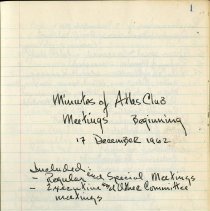 1
Minutes of Atlas Club
Meetings Beginning
17 December 1962
Included:
- Regular and Special Meetings
- Executive and Other Committee
meetings